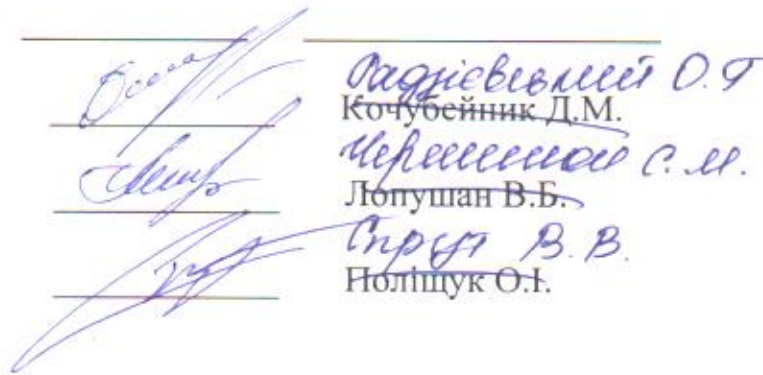 Радзієвський О.Г
Кочубейник Д.М.
С.М.
Лопушан В.Б.
Спрут В.В.
Поліщук О.І.